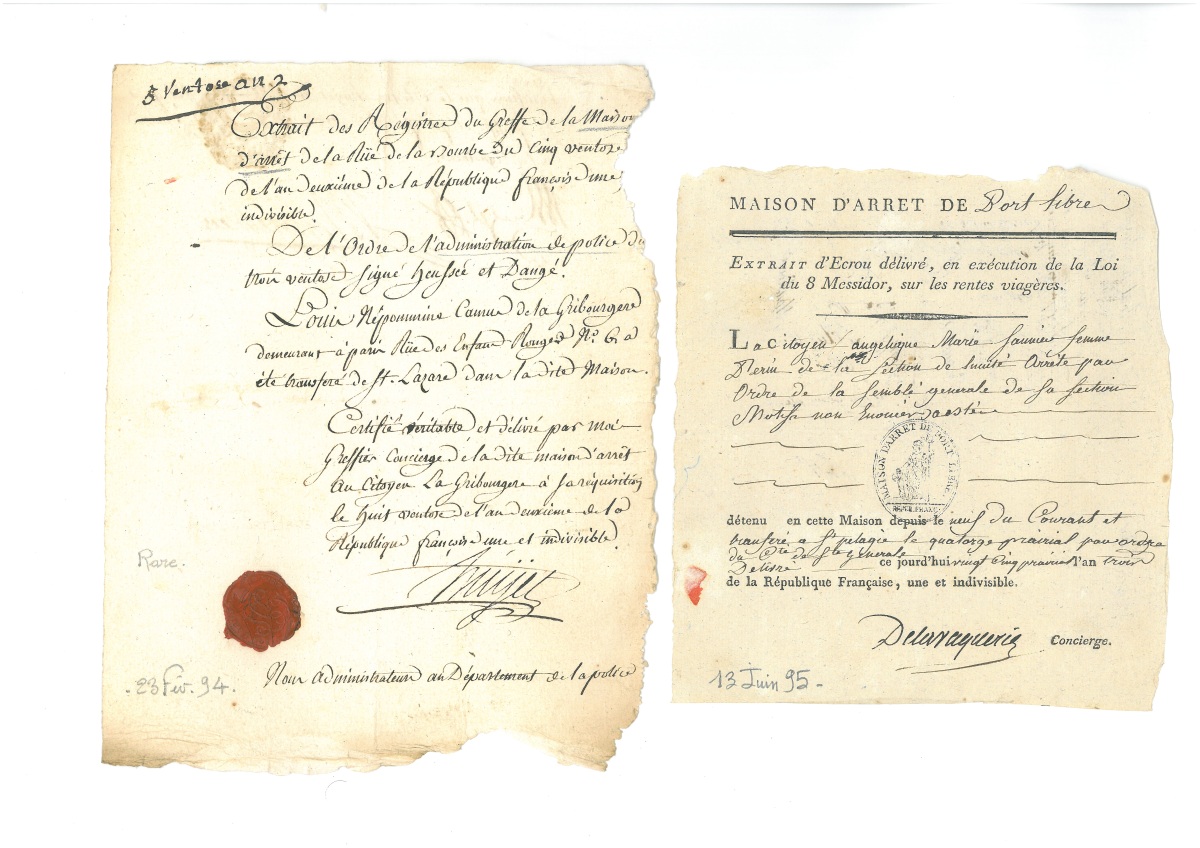 5 Ventose an 2
Extrait des Régistres du Greffe de la Maison
d'arrêt de la Rüe de la Bourbe du Cinq ventose
de l'an deuxiême de la République françoise une
indivisible.
De l'Ordre de l'administration de police du
trois ventose signé heussée et Dangé.
Louis Népomucine Camus de la Gribourgere
demeurant à paris Rüe des Enfans Rouges N.º 6 a
été transferé de St. Lazare dans la dite Maison.
Certifié véritable et délivré par moi
Greffier Concierge de la dite maison d'arrêt
au Citoyen La Gribourgere à sa réquisition
le huit ventose de l'an deuxiême de la
République françoise une et indivisible.
Rare.
23 Fév. 94.
Nous administrateurs au Département de la police
MAISON D'ARRET DE Port libre
EXTRAIT d'Ecrou délivré, en exécution de la Loi
du 8 Messidor, sur les rentes viagères.
La citoyen angelique Marie Saunier femme
de la Section de Arrêté par
Ordre de la semblé generale de sa section
Motifs non
MAISON D'ARRET DE PORT LIBRE
REPUB. FRANC.
détenu en cette Maison depuis le neuf du Courant et
transferé a Ste pelagie le quatorze prairial par ordre
du Cté de Sté Generale
Délivré ce jourd'hui vingt cinq prairial l'an trois
de la République Française, une et indivisible.
Delavaquerie Concierge.
13 Juin 95.